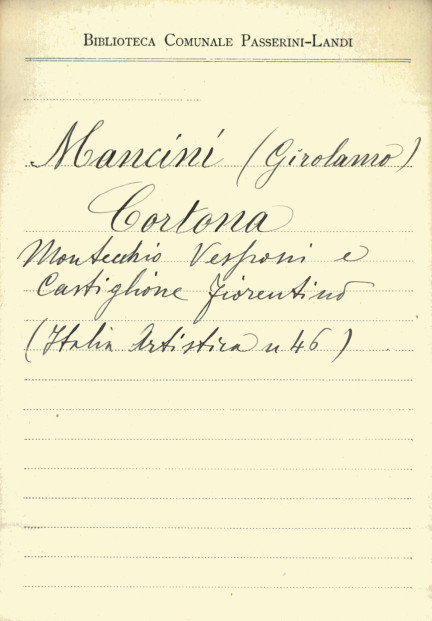 Biblioteca Comunale Passerini-Landi
Mancini (Girolamo)
Cortona
Montecchio Vesponi e
Castiglione Fiorentino
(Italia Artistica n 46)